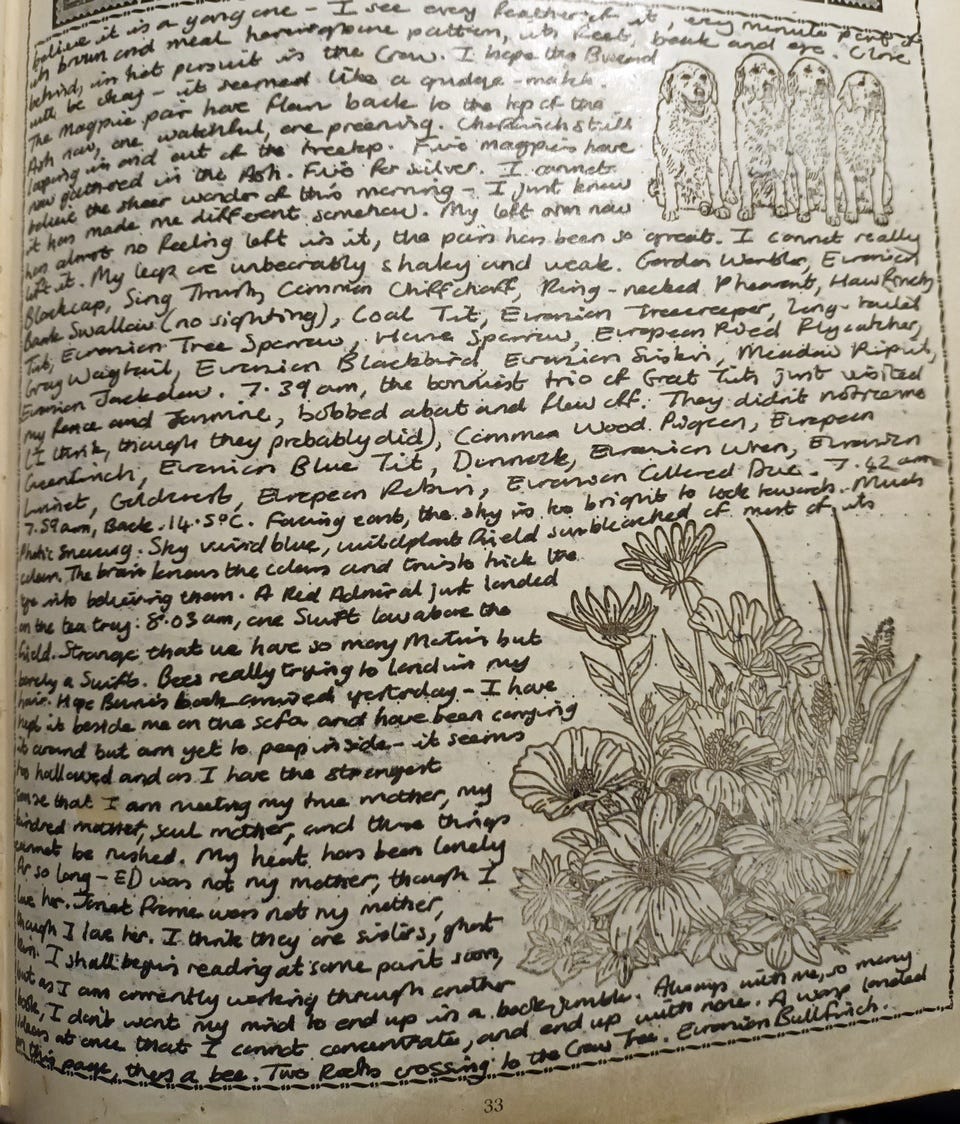 believe it is a young one - I see every feather of it, every minute part of
its brown and meal herringbone pattern, its feet, beak and eye. Close
behind, in hot pursuit is the Crow. I hope the Buzzard
will be okay - it seemed like a grudge-match.
The Magpie pair have flown back to the top of the
Ash now, one watchful, one preening. Chaffinch still
loping in and out of the treetop. Five magpies have
now gathered in the Ash. Five for silver. I cannot
believe the sheer wonder of this morning - I just know
it has made me different somehow. My left arm now
has almost no feeling left in it, the pain has been so great. I cannot really
lift it. My legs are unbearably shaky and weak. Garden Warbler, Eurasian
Blackcap, Song Thrush, Common Chiffchaff, Ring-necked Pheasant, Hawfinch,
Bank Swallow (no sighting), Coal Tit, Eurasian Treecreeper, Long-tailed
Tit, Eurasian Tree Sparrow, House Sparrow, European Pied Flycatcher,
Gray Wagtail, Eurasian Blackbird, Eurasian Siskin, Meadow Pipit,
Eurasian Jackdaw. 7.39am, the bonniest trio of Great Tits just visited
my fence and Jasmine, bobbed about and flew off. They didn't notice me
(I think, though they probably did), Common Wood Pigeon, European
Greenfinch, Eurasian Blue Tit, Dunnock, Eurasian Wren, Eurasian
Linnet, Goldcrest, European Robin, Eurasian Collared Dove. 7.42am
7.59am, Back. 14.5°C. Facing east, the sky is too bright to look towards. Much
Photic Sneezing. Sky vivid blue, wildplant field sunbleached of most of its
colour. The brain knows the colours and tries to trick the
eye into believing them. A Red Admiral just landed
on the tea tray. 8.03am, one Swift low above the
field. Strange that we have so many Martins but
barely a Swift. Bees really trying to land in my
hair. Hope Bourne's book arrived yesterday - I have
kept it beside me on the sofa and have been carrying
it around but am yet to peep inside - it seems
too hallowed and as I have the strangest
sense that I am meeting my true mother, my
kindred mother, soul mother, and those things
cannot be rushed. My heart has been lonely
for so long - ED was not my mother, though I
love her. Janet Frame was not my mother,
though I love her. I think they are sisters, ghost
kin. I shall begin reading at some point soon,
but as I am currently working through another
book, I don't want my mind to end up in a book jumble. Always with me, so many
ideas at once that I cannot concentrate, and end up with none. A wasp landed
on this page, then a bee. Two Rooks crossing to the Crow Tree. Eurasian Bullfinch.
33